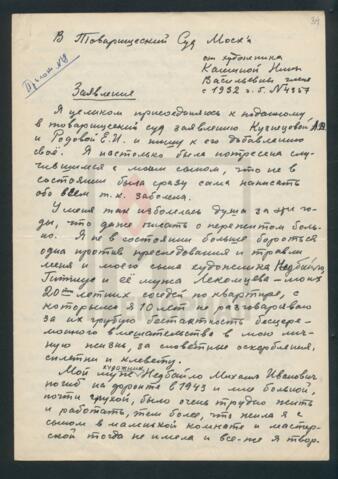 34
В Товарищеский Суд Мосх'а
от художника
Кашиной Нины
Васильевны члена
с 1932 г. б. №4357
Заявление
Я целиком присоединяюсь к поданному
в товарищеский суд заявлению Кузнецовой А.В.
и Родовой Е.И. и пишу к его добавлению
своё. Я настолько была потрясена слу-
чившимся с моим сыном, что не в
состоянии была сразу сама написать
обо всём т.к. заболела.
У меня так изболелась душа за эти го-
ды, что даже писать о пережитом боль-
но. Я не в состоянии больше бороться
одна против преследования и травли
меня и моего сына художника Недбайло,
и её мужа Лекомцева – моих
20ти летних соседей по квартире, с
которыми я 10 лет не разговариваю
за их грубую бестактность бесцере-
монного вмешательства в мою лич-
ную жизнь, за словесные оскорбления,
сплетни и клевету.
Мой муж художник Недбайло Михаил Иванович
погиб на фронте в 1943 и мне больной,
почти глухой, было очень трудно жить
и работать, тем более, что жила я с
сыном в маленькой комнате и мастер-
ской тогда не имела и все-же я твор-